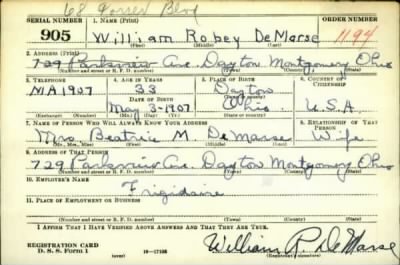 68 Forrer Blvd
SERIAL NUMBER 1. NAME (Print) ORDER NUMBER
905 William Robey DeMarse 1194
(First) (Middle) (Last)
2. ADDRESS (Print)
729 Parkview Ave. Dayton Montgomery Ohio
(Number and street or R. F. D. number) (Town) (County) (State)
3. TELEPHONE 4. AGE IN YEARS 5. PLACE OF BIRTH 6. COUNTRY OF CITIZENSHIP
MA1907 33 Dayton
DATE OF BIRTH (Town or county)
May 3-1907 Ohio U.S.A.
(Exchange) (No.) (Mo.) (Day) (Yr.) (State or country)
7. NAME OF PERSON WHO WILL ALWAYS KNOW YOUR ADDRESS 8. RELATIONSHIP OF THAT PERSON
Mrs. Beatrice M. DeMarse Wife
(Mr., Mrs., Miss) (First) (Middle) (Last)
9. ADDRESS OF THAT PERSON
729 Parkview Ave. Dayton Montgomery Ohio
(Number and street or R. F. D. number) (Town) (County) (State)
10. EMPLOYER'S NAME
Frigidaire
11. PLACE OF EMPLOYMENT OR BUSINESS
(Number and street or R. F. D. number) (Town) (County) (State)
I AFFIRM THAT I HAVE VERIFIED ABOVE ANSWERS AND THAT THEY ARE TRUE.
REGISTRATION CARD
D. S. S. Form 1 16-17105 William R. DeMarse
(Registrant's signature)